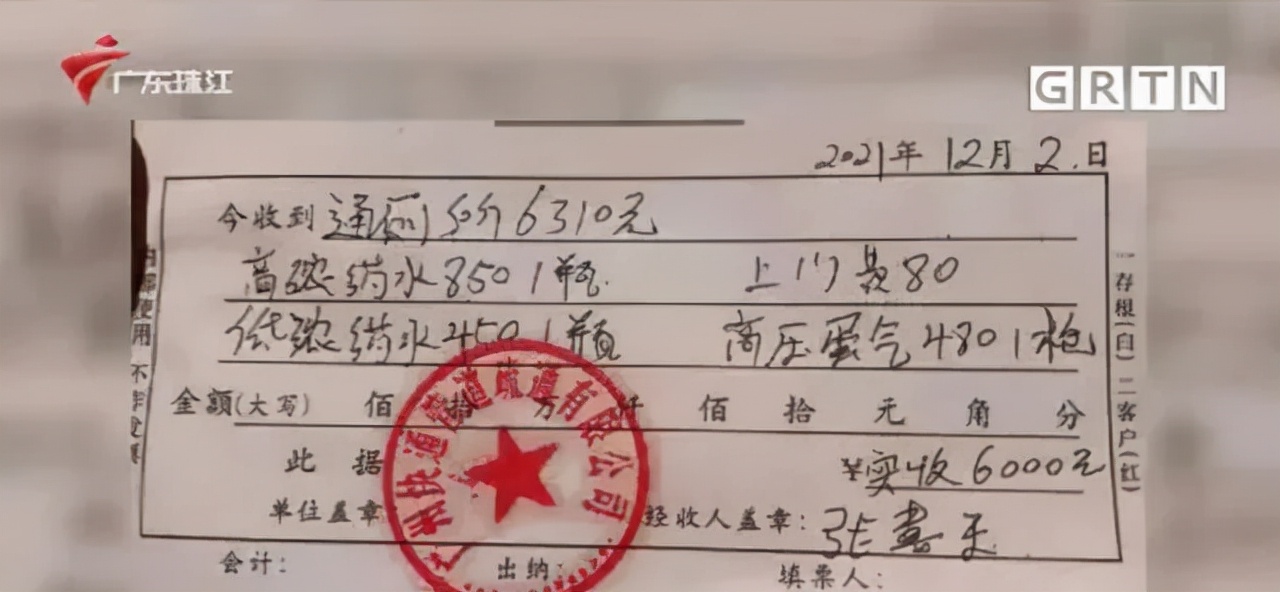 广东珠江
GRTN
2021年12月2日
今收到通厕 6310元
高浓药水850 1瓶 上门费80
低浓药水450 1瓶 高压蛋气480 1枪
金额(大写) 佰 拾 万 仟 佰 拾 元 角 分
此据 ¥实收6000元
单位盖章 经收人盖章:张
会计: 出纳: 填票人:
存根(白) 二客户(红)
使用 不
快通管道疏通有限公司